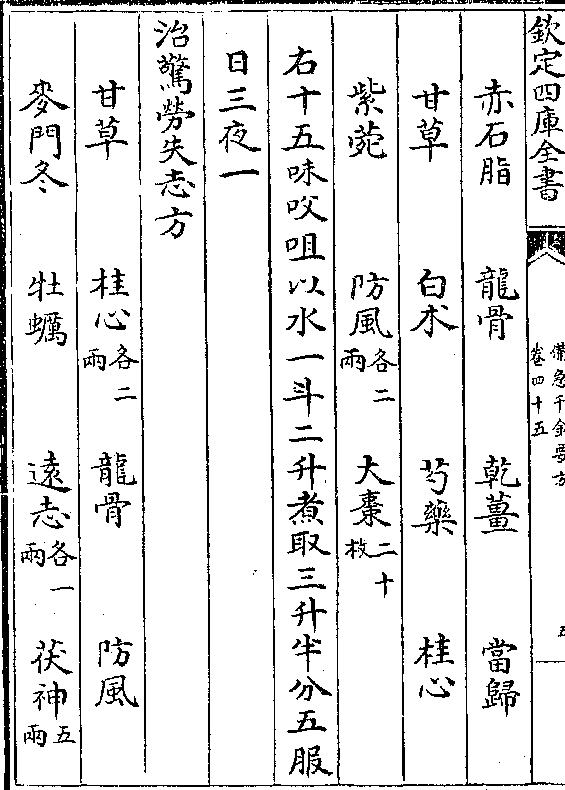 欽定四庫全書
備急千金要方
卷四十五
五
赤石脂 龍骨 乾薑 當歸
甘草 白朮 芍藥 桂心
紫菀 防風各二兩 大棗二十枚
右十五味㕮咀以水一斗二升煮取三升半分五服
日三夜一
治驚勞失志方
甘草 桂心各二兩 龍骨 防風
麥門冬 牡蠣 遠志各一兩 茯神五兩